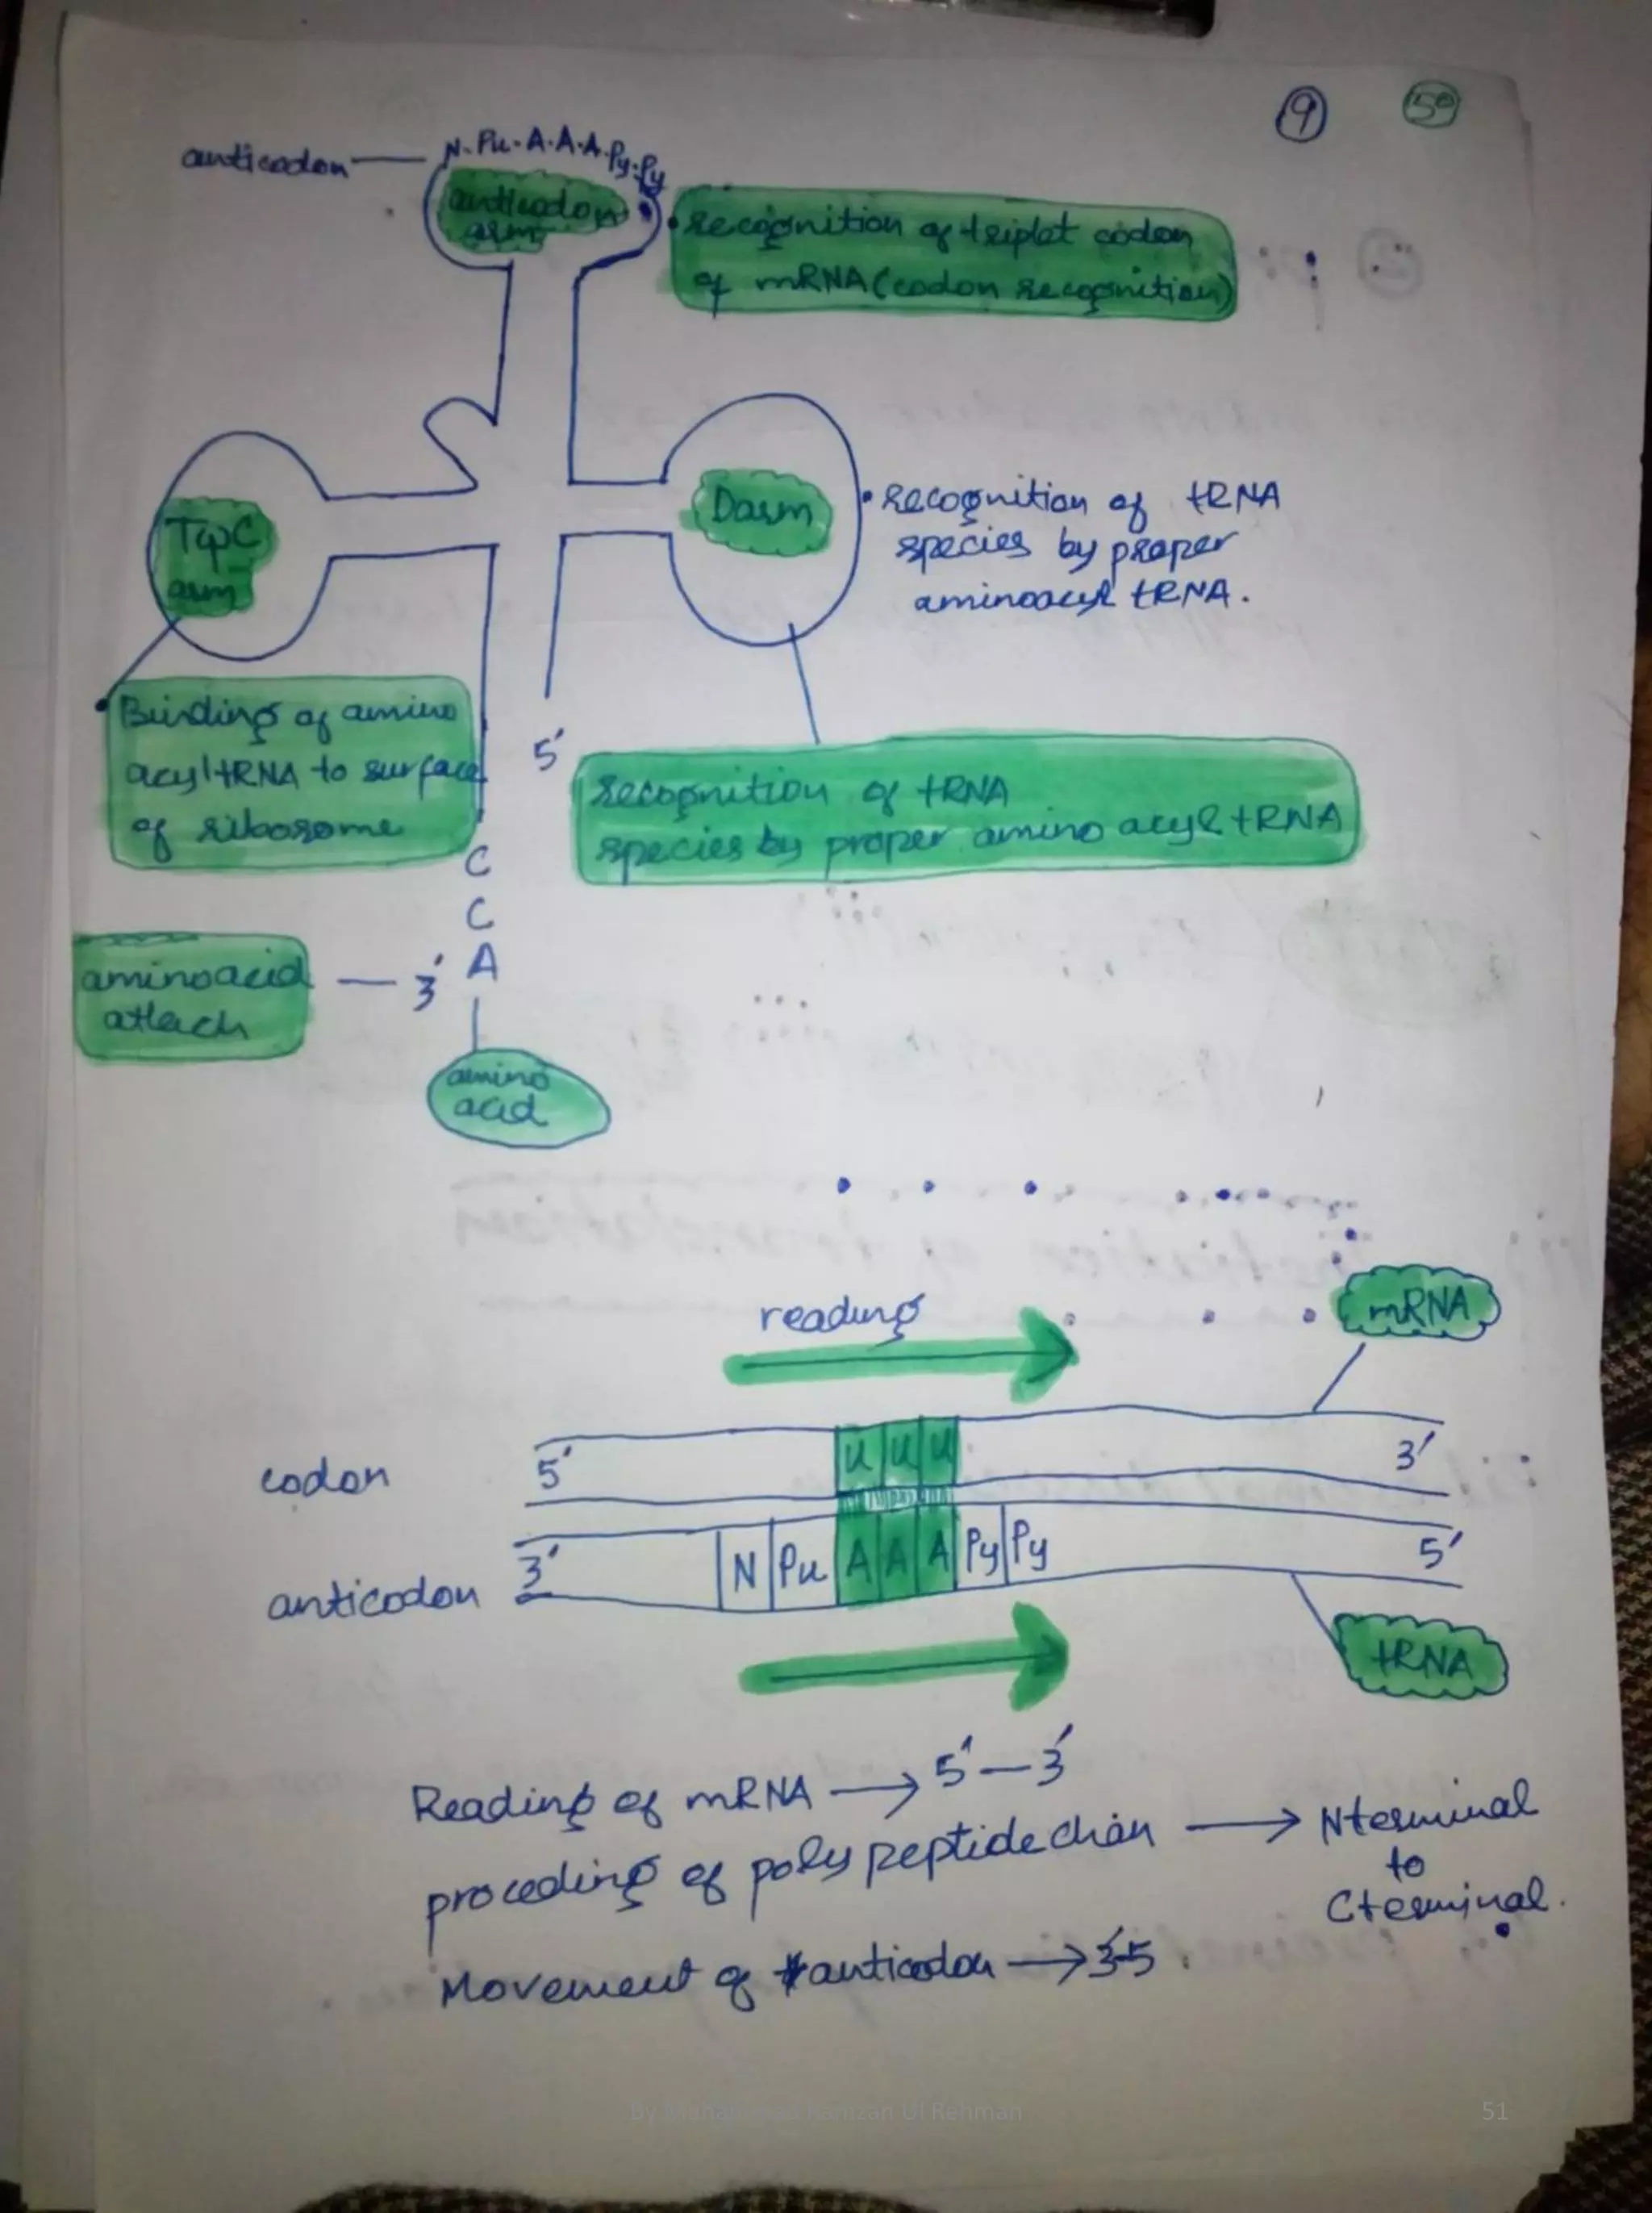 9 50
anticodon
N-Pu-A-A-A-Py-Py
anticodon
arm
recognition of triplet codon
of mRNA (codon recognition)
TψC
arm
Darm
recognition of tRNA
species by proper
aminoacyl tRNA.
Binding of amino
acyl tRNA to surface
of ribosome
5'
recognition of tRNA
species by proper amino acyl tRNA
C
C
A
aminoacid
attach
3'
amino
acid
reading
mRNA
codon
5' U U U 3'
anticodon
3' N Pu A A A Py Py 5'
tRNA
Reading of mRNA → 5'-3'
proceding of poly peptide chain → N terminal
to
C terminal.
Movement of anticodon → 3'-5
51